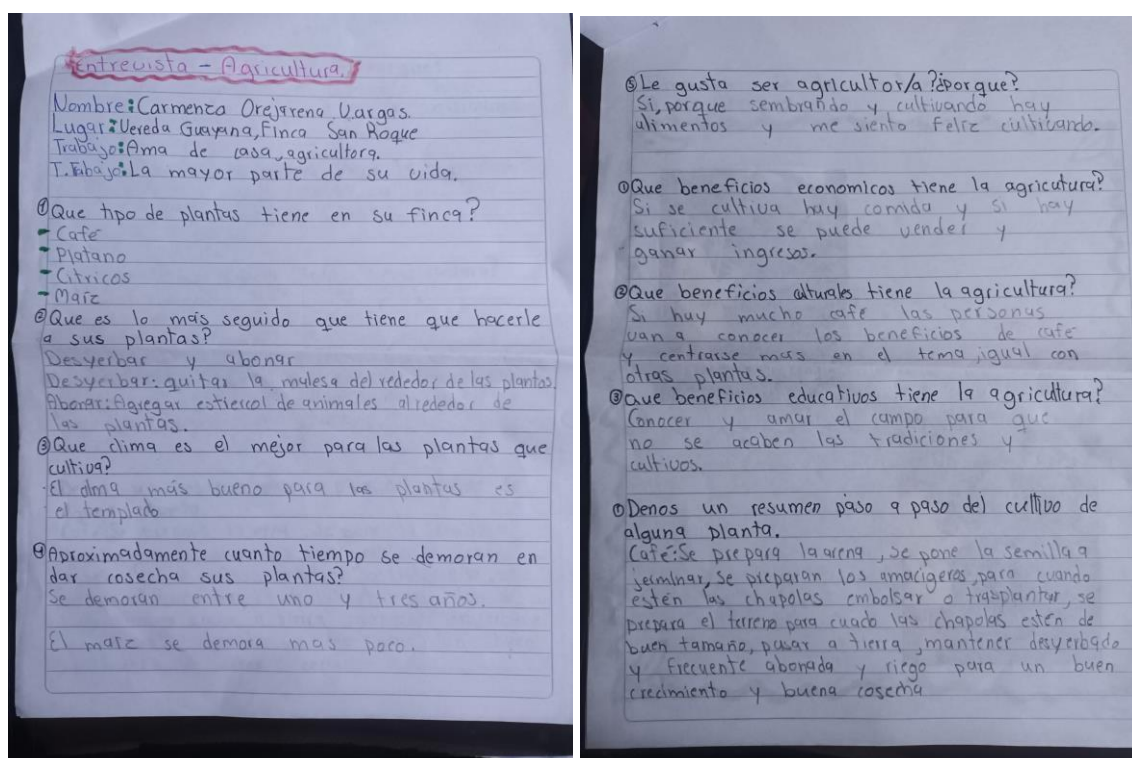 Entrevista - Agricultura.
Nombre: Carmenza Orejarena Vargas.
Lugar: Vereda Guayana, Finca San Roque
Trabajo: Ama de casa, agricultora.
T. Trabajo: La mayor parte de su vida.
① Que tipo de plantas tiene en su finca?
- Café
- Platano
- Citricos
- Maíz
② Que es lo más seguido que tiene que hacerle
a sus plantas?
Desyerbar y abonar
Desyerbar: quitar la malesa del rededor de las plantas.
Abonar: Agregar estiercol de animales alrededor de
las plantas.
③ Que clima es el mejor para las plantas que
cultiva?
El clima más bueno para las plantas es
el templado
④ Aproximadamente cuanto tiempo se demoran en
dar cosecha sus plantas?
Se demoran entre uno y tres años.
El maíz se demora mas poco.
⑤ Le gusta ser agricultor/a? ¿porque?
Si, porque sembrando y cultivando hay
alimentos y me siento feliz cultivando.
① Que beneficios economicos tiene la agricutura?
Si se cultiva hay comida y si hay
suficiente se puede vender y
ganar ingresos.
② Que beneficios culturales tiene la agricultura?
Si hay mucho café las personas
van a conocer los beneficios de café
y centrarse mas en el tema, igual con
otras plantas.
③ Que beneficios educativos tiene la agricultura?
Conocer y amar el campo para que
no se acaben las tradiciones y
cultivos.
① Denos un resumen paso a paso del cultivo de
alguna planta.
Café: Se prepara la arena, se pone la semilla a
jerminar, se preparan los amacigeros, para cuando
estén las chapolas embolsar o trasplantar, se
prepara el terreno para cuado las chapolas estén de
buen tamaño, pasar a tierra, mantener desyerbado
y frecuente abonada y riego para un buen
crecimiento y buena cosecha